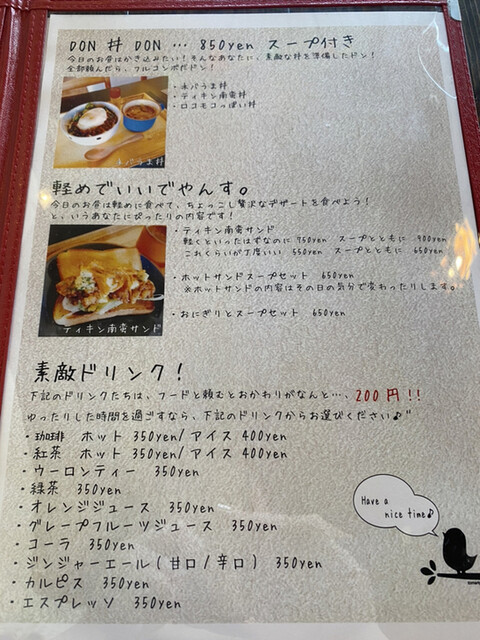 DON 丼 DON … 850yen スープ付き
今日のお昼はかき込みたい！そんなあなたに、素敵な丼を準備したドン！
全部頼んだら、フルコンボだドン！
・ネバうま丼
・ティキン南蛮丼
・ロコモコっぽい丼
ネバうま丼
軽めでいいでやんす。
今日のお昼は軽めに食べて、ちょっこし贅沢なデザートを食べよう！
と、いうあなたにぴったりの内容です！
・ティキン南蛮サンド
軽くといったはずなのに 750yen スープとともに 900yen
これくらいが丁度いい 550yen スープとともに 650yen
・ホットサンドスープセット 650yen
※ホットサンドの内容はその日の気分で変わったりします。
・おにぎりとスープセット 650yen
ティキン南蛮サンド
素敵ドリンク！
下記のドリンクたちは、フードと頼むとおかわりがなんと…、200円!!
ゆったりした時間を過ごすなら、下記のドリンクからお選びください♪"
・珈琲 ホット 350yen/アイス 400yen
・紅茶 ホット 350yen/アイス 400yen
・ウーロンティー 350yen
・緑茶 350yen
・オレンジジュース 350yen
・グレープフルーツジュース 350yen
・コーラ 350yen
・ジンジャーエール(甘口/辛口) 350yen
・カルピス 350yen
・エスプレッソ 350yen
Have a
nice time♪